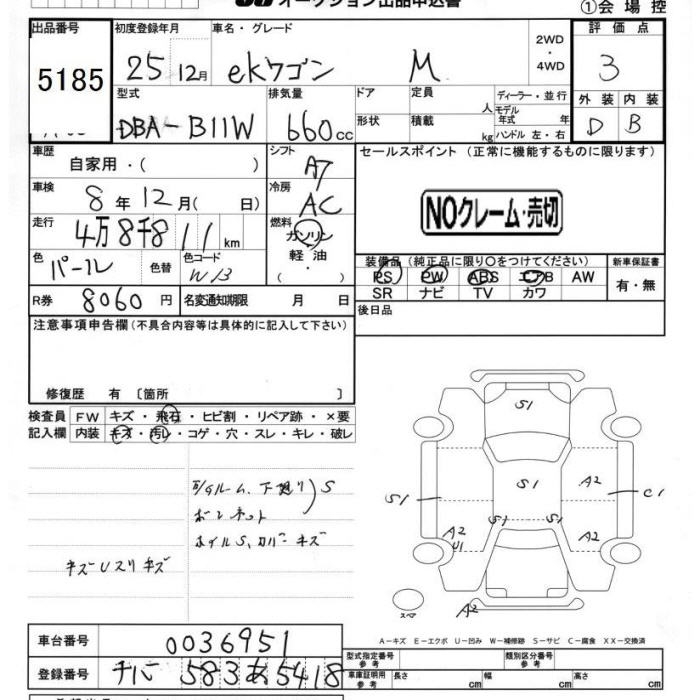 オークション出品申込書
①会場控
出品番号 初度登録年月 車名・グレード 2WD・4WD 評価点
5185 25 12月 ekワゴン M 3
型式 排気量 ドア 定員 人 ディーラー・並行 外装 内装
DBA-B11W 660cc 形状 積載 kg モデル年式 年 ハンドル 左・右 D B
車歴 自家用・( ) シフト AT セールスポイント (正常に機能するものに限ります)
車検 8年12月( 日) 冷房 AC
NOクレーム・売切
走行 4万8千811km 燃料 ガソリン・軽油・
色 パール 色替 色コード W13
装備品 (純正品に限り〇をつけてください) 新車保証書
PS PW ABS エアB AW 有・無
SR ナビ TV カワ
R券 8060円 名変通知期限 月 日
後日品
注意事項申告欄 (不具合内容等は具体的に記入して下さい)
修復歴 有 〔箇所 〕
検査員 FW キズ・飛石・ヒビ割・リペア跡・×要
記入欄 内装 キズ・汚レ・コゲ・穴・スレ・キレ・破レ
ルーム、下廻り)S
ボンネット
ホイルS、カバーキズ
キズUスリキズ
S1
A2
S1 S1 C1
S1 S1
A2 A2
U1
スペア A2
A-キズ E-エクボ U-凹み W-補修跡 S-サビ C-腐食 XX-交換済
車台番号 0036951
型式指定番号 参考 類別区分番号 参考
登録番号 チバ 583 あ 5418
車庫証明用 参考 長さ cm 幅 cm 高さ cm